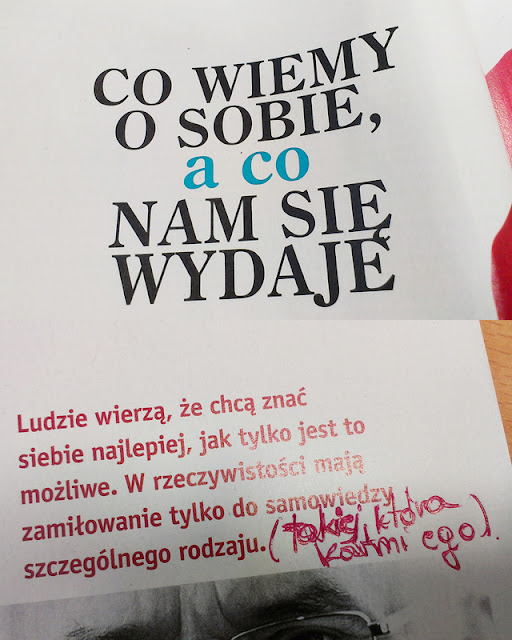 CO WIEMY
O SOBIE,
a co
NAM SIĘ
WYDAJĘ
Ludzie wierzą, że chcą znać
siebie najlepiej, jak tylko jest to
możliwe. W rzeczywistości mają
zamiłowanie tylko do samowiedzy
szczególnego rodzaju. (takiej, która
karmi ego).